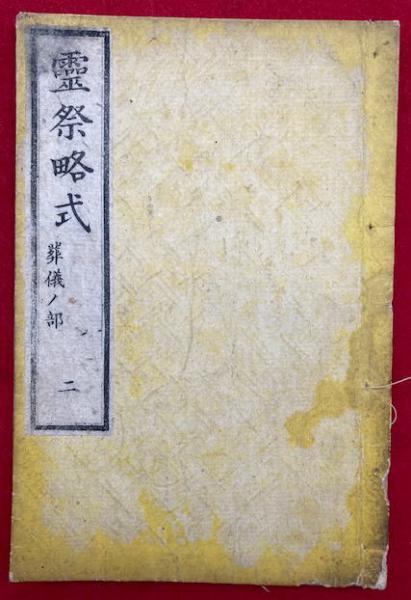 靈祭略式
葬儀ノ部
二